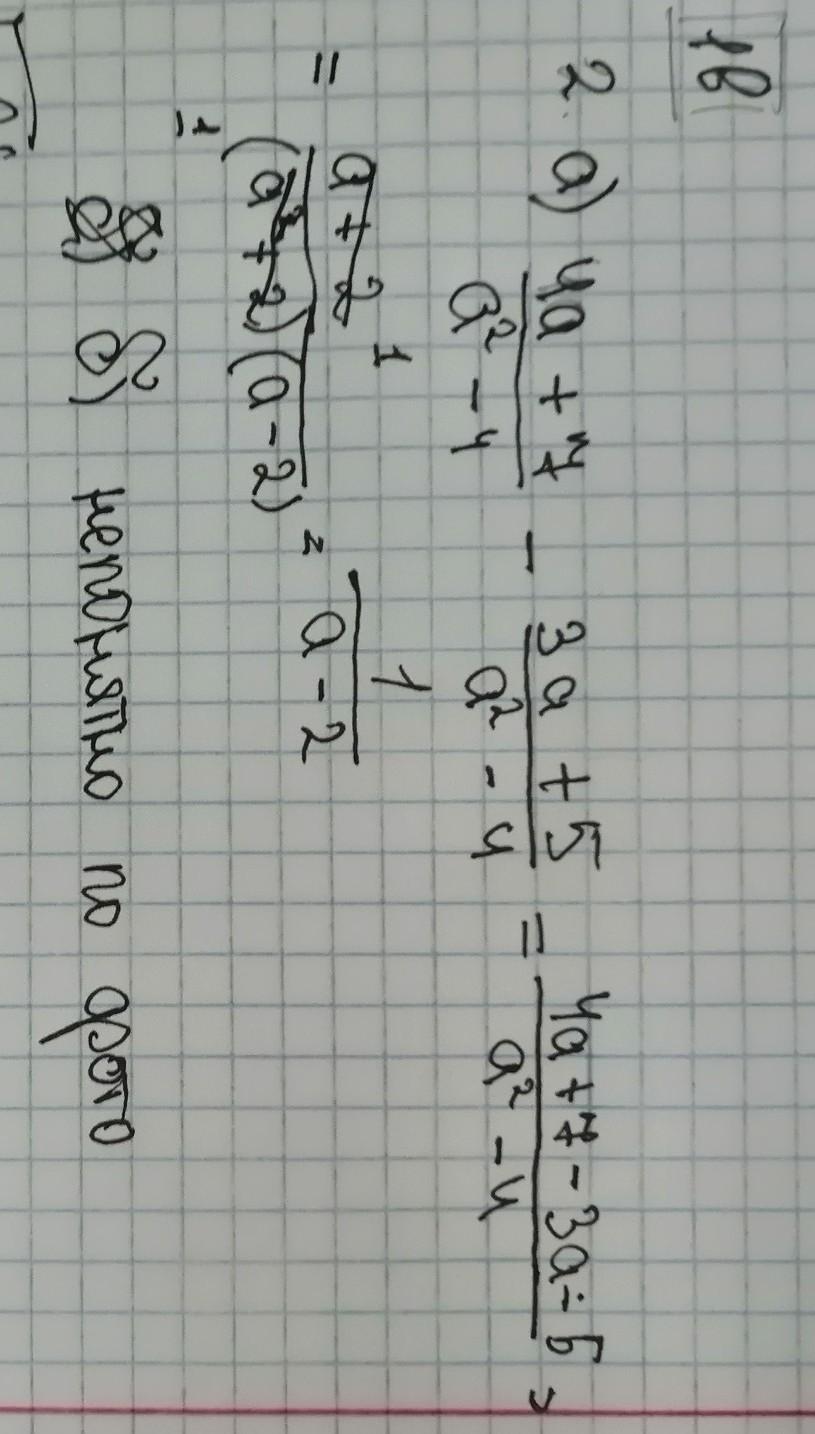 1в
2. а) (4a + 7)/(a² - 4) - (3a + 5)/(a² - 4) = (4a + 7 - 3a - 5)/(a² - 4) =
= (a + 2)/((a + 2)(a - 2)) = 1/(a - 2)
б) непонятно по фото